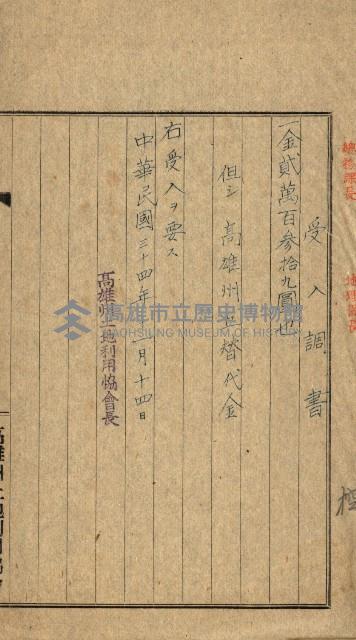 受入調書
一金貳萬百參拾九圓也
但シ高雄州 替代金
右受入ヲ要ス
中華民國三十四年 月十四日
高雄州土地利用協會長
高雄市立歷史博物館
KAOHSIUNG MUSEUM OF HISTORY
高雄州土地利用協會